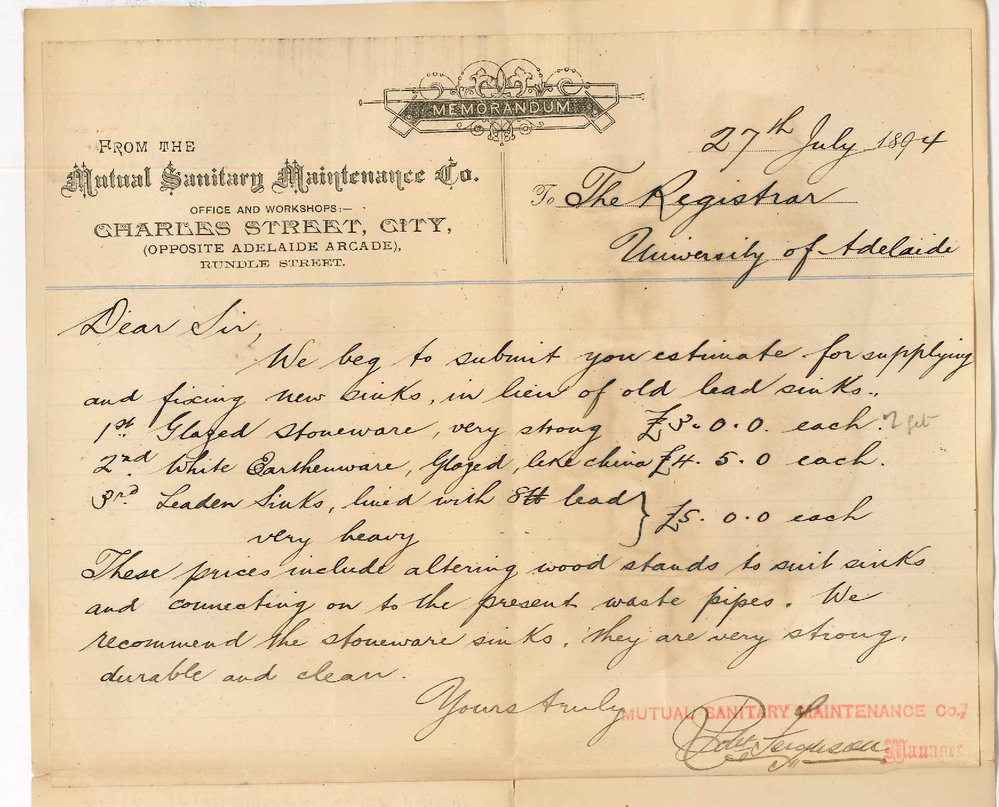 MEMORANDUM
FROM THE
Mutual Sanitary Maintenance Co.
OFFICE AND WORKSHOPS:—
CHARLES STREET, CITY,
(OPPOSITE ADELAIDE ARCADE),
RUNDLE STREET.
27th July 1894
To The Registrar
University of Adelaide
Dear Sir,
We beg to submit you estimate for supplying
and fixing new sinks, in lieu of old lead sinks..
1st. Glazed stoneware, very strong £3.0.0. each.
2nd. White Earthenware, Glazed, like china £4.5.0 each.
3rd. Leaden Sinks, lined with 8lb lead
very heavy } £5.0.0 each
These prices include altering wood stands to suit sinks
and connecting on to the present waste pipes. We
recommend the stoneware sinks, they are very strong,
durable and clean.
Yours truly
MUTUAL SANITARY MAINTENANCE CO.,
Robt Ferguson
Manager